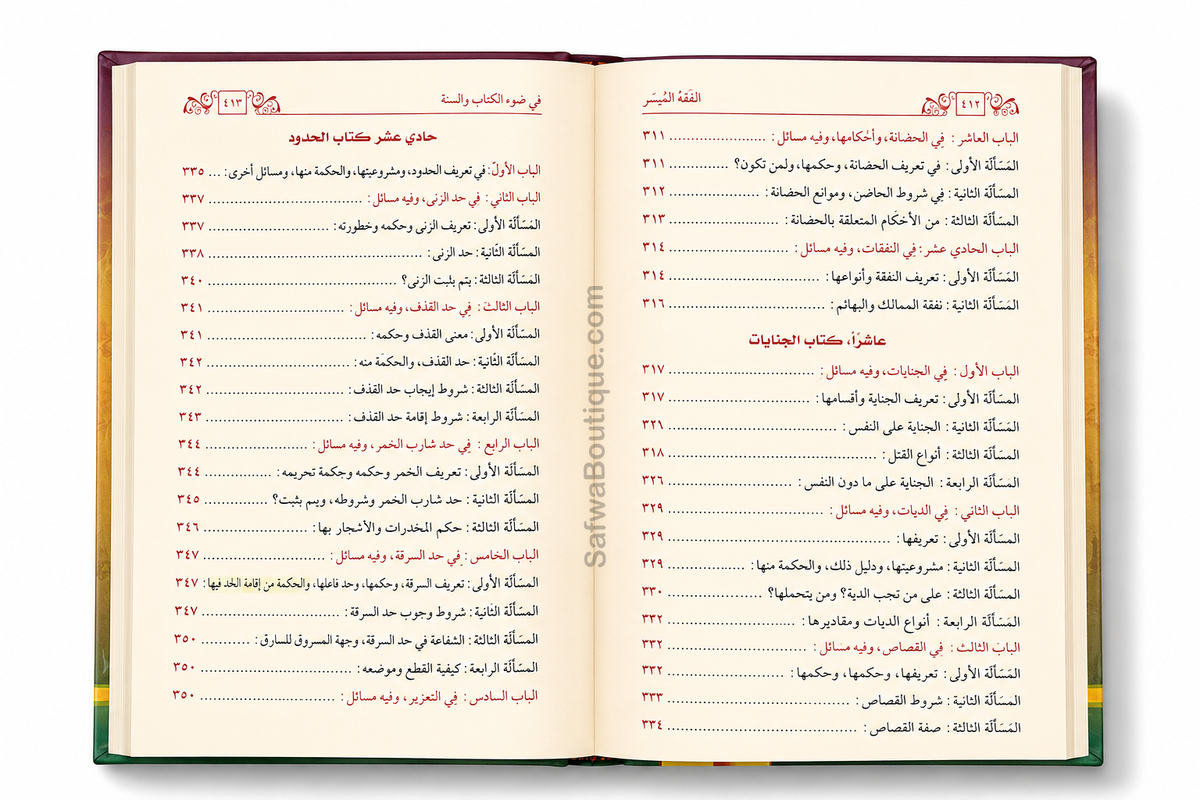 الفقهُ المُيسَر
٤١٢
الباب العاشر : في الحضانة، وأحكامها، وفيه مسائل : ٣١١
المَسَألَة الأولى : في تعريف الحضانة، وحكمها، ولمن تكون؟ ٣١١
المَسَألَة الثانية : في شروط الحاضن، وموانع الحضانة : ٣١٢
المَسَألَة الثالثة : من الأحكَام المتعلقة بالحضانة : ٣١٣
الباب الحادي عشر : في النفقات، وفيه مسائل : ٣١٤
المَسَألَة الأولى : تعريف النفقة وأنواعها : ٣١٤
المَسَألَة الثانية : نفقة الممالك والبهائم : ٣١٦
عاشرًا، كتاب الجنايات
الباب الأول : في الجنايات، وفيه مسائل : ٣١٧
المَسَألَة الأولى : تعريف الجناية وأقسامها : ٣١٧
المَسَألَة الثانية : الجناية على النفس : ٣٢١
المَسَألَة الثالثة : أنواع القتل : ٣١٨
المَسَألَة الرابعة : الجناية على ما دون النفس : ٣٢٦
الباب الثاني : في الديات، وفيه مسائل : ٣٢٩
المَسَألَة الأولى : تعريفها : ٣٢٩
المَسَألَة الثانية : مشروعيتها، ودليل ذلك، والحكمة منها : ٣٢٩
المَسَألَة الثالثة : على من تجب الدية؟ ومن يتحملها؟ ٣٣٠
المَسَألَة الرابعة : أنواع الديات ومقاديرها : ٣٣٢
الباب الثالث : في القصاص، وفيه مسائل : ٣٣٢
المَسَألَة الأولى : تعريفها، وحكمها، وحكمها : ٣٣٢
المَسَألَة الثانية : شروط القصاص : ٣٣٣
المَسَألَة الثالثة : صفة القصاص : ٣٣٤
في ضوء الكتاب والسنة
٤١٣
حادي عشر كتاب الحدود
الباب الأول : في تعريف الحدود، ومشروعيتها، والحكمة منها، ومسائل أخرى : ٣٣٥
الباب الثاني : في حد الزنى، وفيه مسائل : ٣٣٧
المَسَألَة الأولى : تعريف الزنى وحكمه وخطورته : ٣٣٧
المَسَألَة الثانية : حد الزنى : ٣٣٨
المَسَألَة الثالثة : يتم يثبت الزنى؟ ٣٤٠
الباب الثالث : في حد القذف، وفيه مسائل : ٣٤١
المَسَألَة الأولى : معنى القذف وحكمه : ٣٤١
المَسَألَة الثانية : حد القذف، والحكمَة منه : ٣٤٢
المَسَألَة الثالثة : شروط إيجاب حد القذف : ٣٤٢
المَسَألَة الرابعة : شروط إقامة حد القذف : ٣٤٣
الباب الرابع : في حد شارب الخمر، وفيه مسائل : ٣٤٤
المَسَألَة الأولى : تعريف الخمر وحكمه وجكمة تحريمه : ٣٤٤
المَسَألَة الثانية : حد شارب الخمر وشروطه، وبم يثبت؟ ٣٤٥
المَسَألَة الثالثة : حكم المخدرات والأشجار بها : ٣٤٦
الباب الخامس : في حد السرقة، وفيه مسائل : ٣٤٧
المَسَألَة الأولى : تعريف السرقة، وحكمها، وحد فاعلها، والحكمة من إقامة الحد فيها : ٣٤٧
المَسَألَة الثانية : شروط وجوب حد السرقة : ٣٤٧
المَسَألَة الثالثة : الشفاعة في حد السرقة، وجهة المسروق للسارق : ٣٥٠
المَسَألَة الرابعة : كيفية القطع وموضعه : ٣٥٠
الباب السادس : في التعزير، وفيه مسائل : ٣٥٠
SafwaBoutique.com